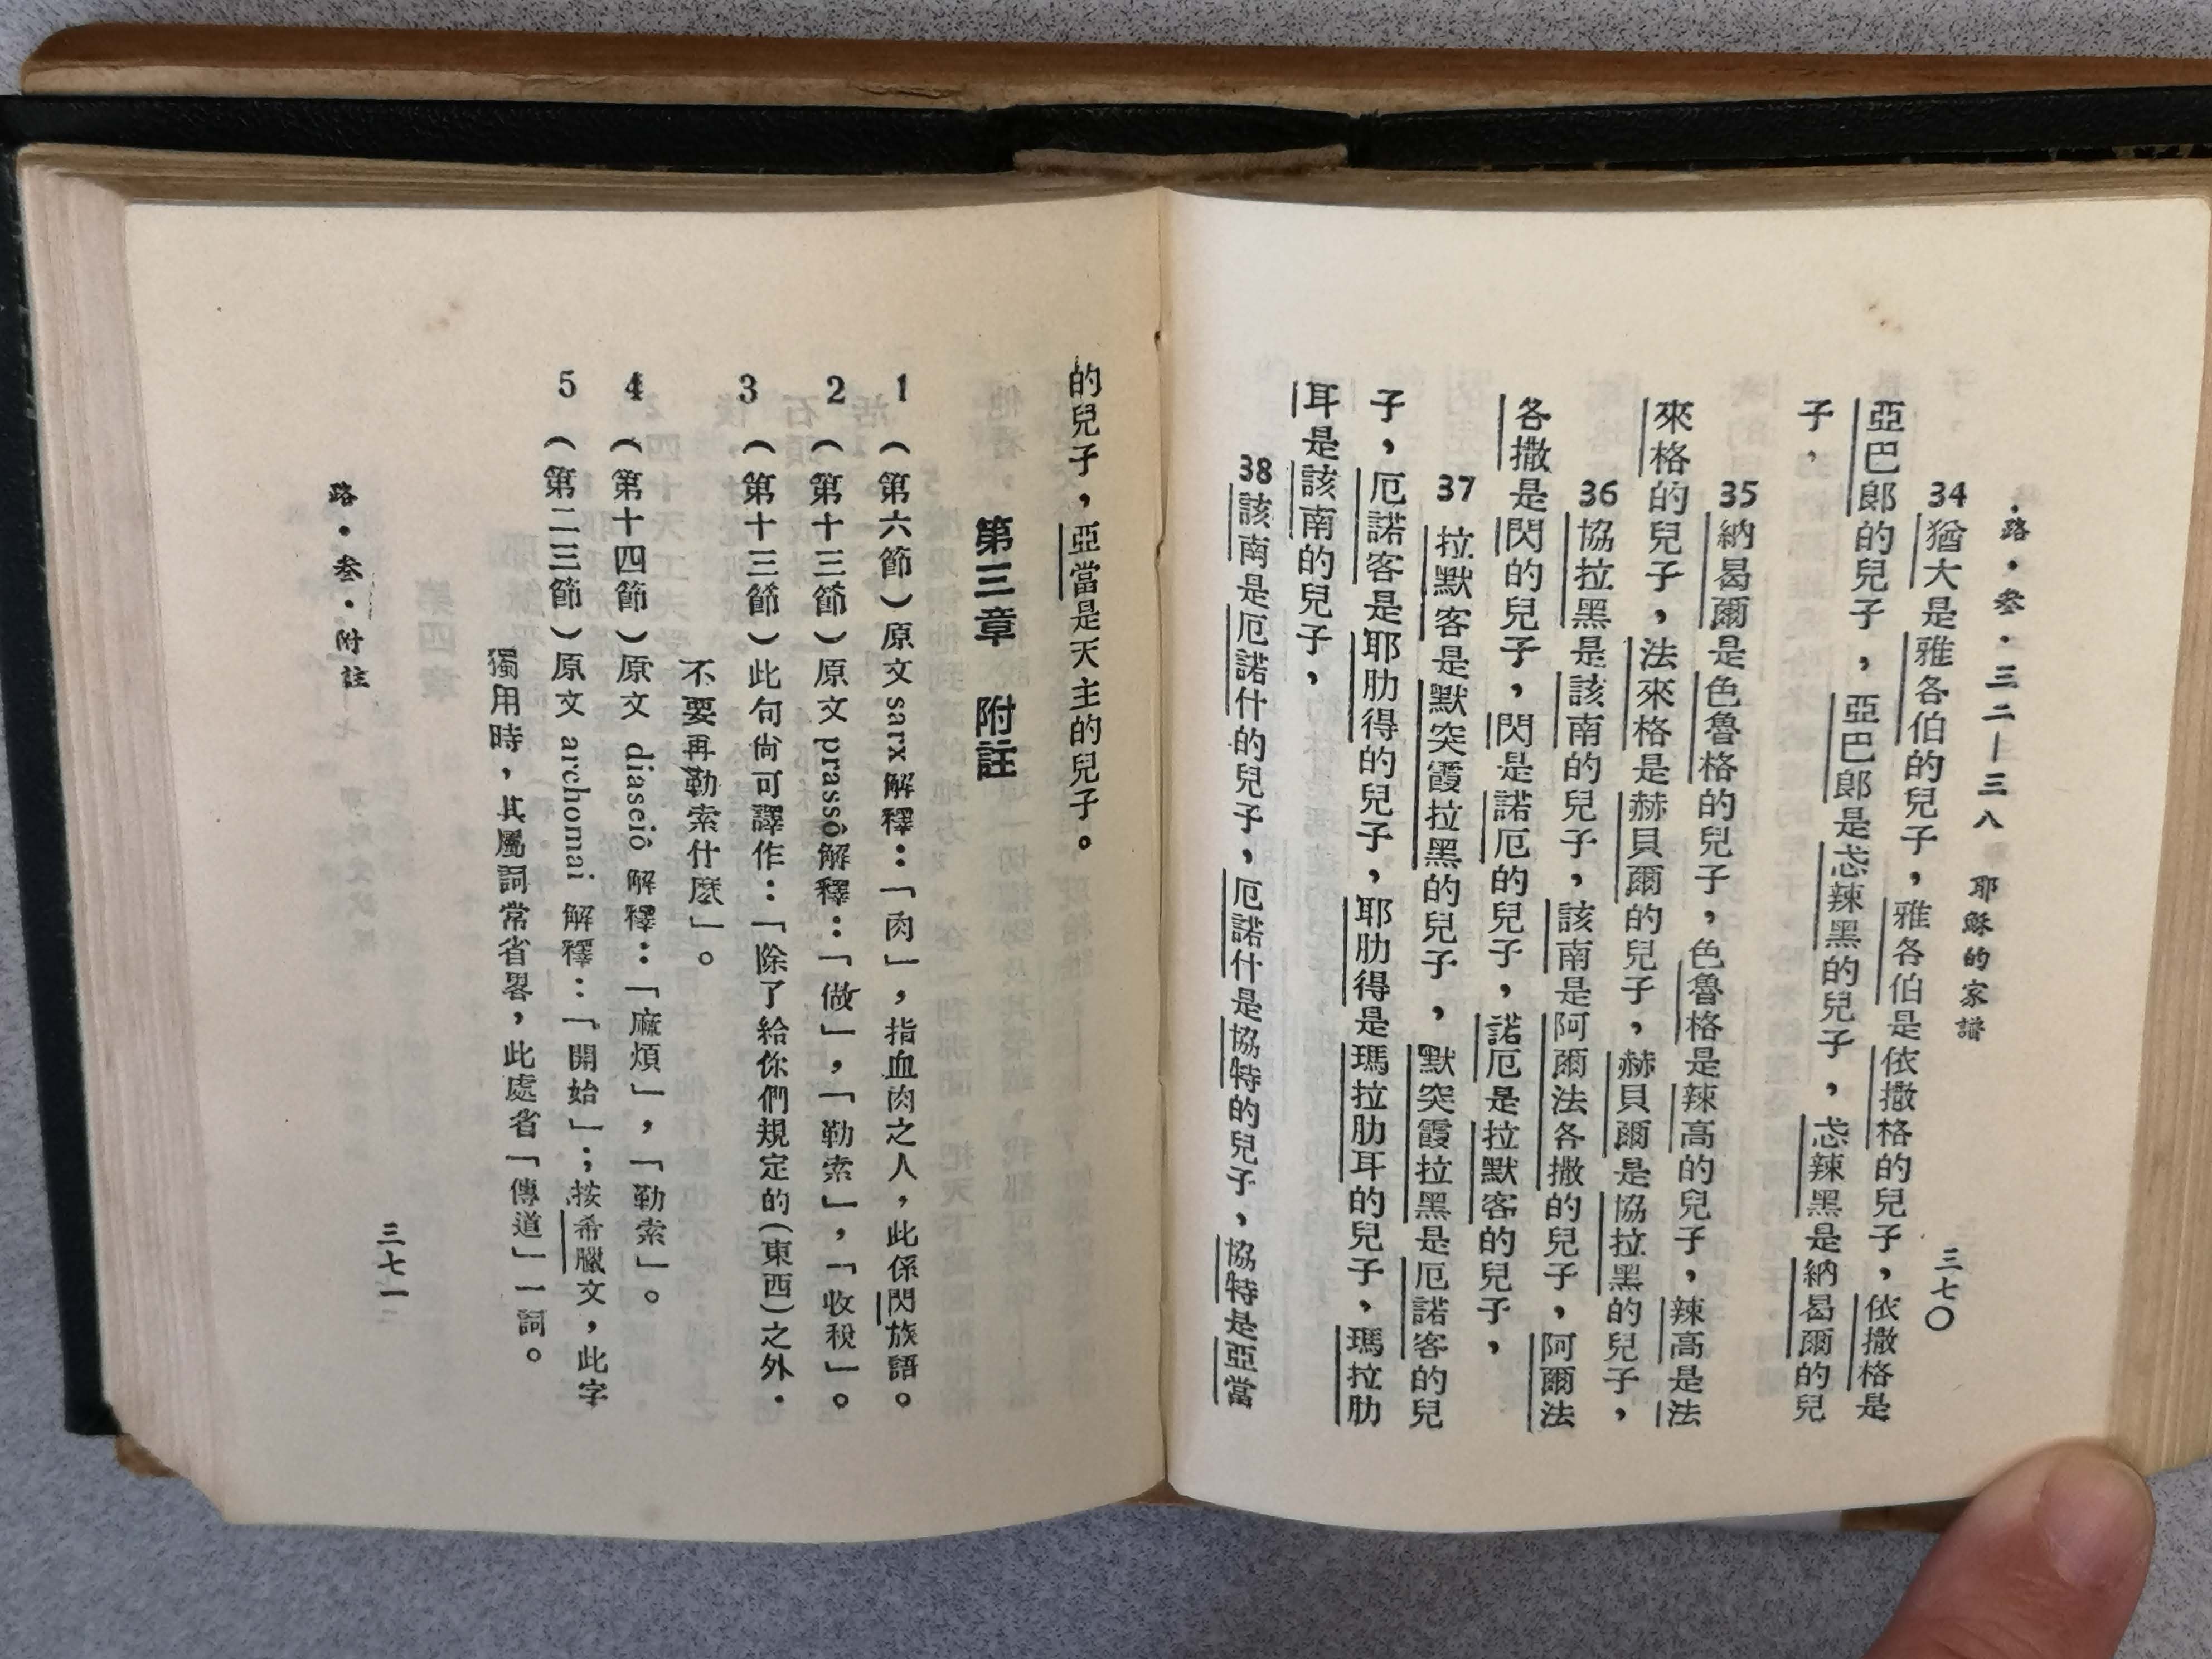 路・叁・三二—三八 耶穌的家譜
三七〇
34猶大是雅各伯的兒子，雅各伯是依撒格的兒子，依撒格是
亞巴郎的兒子，亞巴郎是忒辣黑的兒子，忒辣黑是納曷爾的兒
子，
35納曷爾是色魯格的兒子，色魯格是辣高的兒子，辣高是法
來格的兒子，法來格是赫貝爾的兒子，赫貝爾是協拉黑的兒子，
36協拉黑是該南的兒子，該南是阿爾法各撒的兒子，阿爾法
各撒是閃的兒子，閃是諾厄的兒子，諾厄是拉默客的兒子，
37拉默客是默突霞拉黑的兒子，默突霞拉黑是厄諾客的兒
子，厄諾客是耶肋得的兒子，耶肋得是瑪拉肋耳的兒子，瑪拉肋
耳是該南的兒子，
38該南是厄諾什的兒子，厄諾什是協特的兒子，協特是亞當
的兒子，亞當是天主的兒子。
第三章 附註
1（第六節）原文 sarx 解釋：「肉」，指血肉之人，此係閃族語。
2（第十三節）原文 prassô 解釋：「做」，「勒索」，「收稅」。
3（第十三節）此句尙可譯作：「除了給你們規定的（東西）之外・
不要再勒索什麽」。
4（第十四節）原文 diaseiô 解釋：「麻煩」，「勒索」。
5（第二三節）原文 archomai 解釋：「開始」；按希臘文，此字
獨用時，其屬詞常省畧，此處省「傳道」一詞。
路・叁・附註
三七一